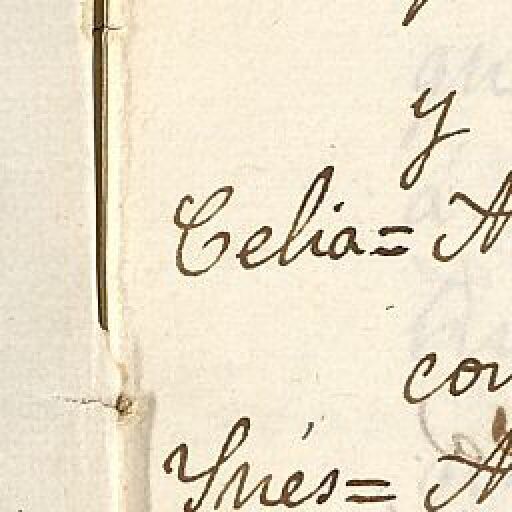 y
Celia= A
con
Ynés= A